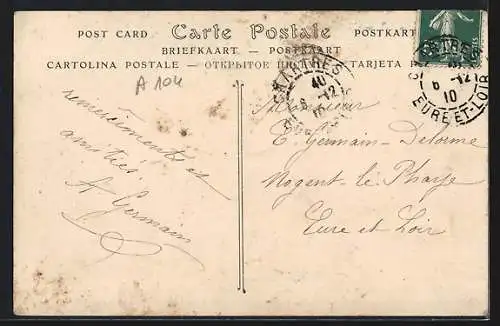 POST CARD Carte Postale POSTKART
BRIEFKAART — POSTKAART
CARTOLINA POSTALE — ОТКРЫТОЕ TARJETA
A 104
remerciements et
amitiés
A Germain
CHARTRES
6 -12
10
Monsieur
E. Germain-Delorme
Nogent-le-Phaye
Eure et Loir
CHARTRES
6 -12
10
EURE-ET-LOIR